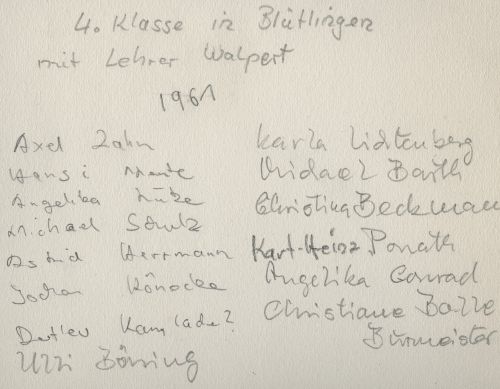 4. Klasse in Blütlingen
mit Lehrer Walpert
1961
Axel Zahn
Hansi
Angelika Lütze
Michael Schulz
Astrid Herrmann
Jochen
Detlev Kamlade?
Ulli Böning
Karla Lichtenberg
Michael Barth
Christina Beckmann
Karl-Heinz Ponath
Angelika Conrad
Christiane Balze
Burmeister